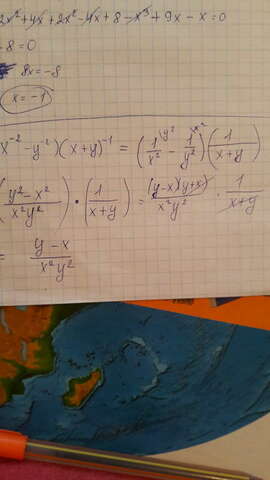 2x² + 4x + 2x² - 4x + 8 - x³ + 9x - x = 0
-8 = 0
8x = -8
x = -1
x⁻² - y⁻²)(x+y)⁻¹ = (1/x² - 1/y²)(1/(x+y))
((y² - x²)/(x²y²)) · (1/(x+y)) = ((y-x)(y+x))/(x²y²) · 1/(x+y)
= (y - x)/(x²y²)